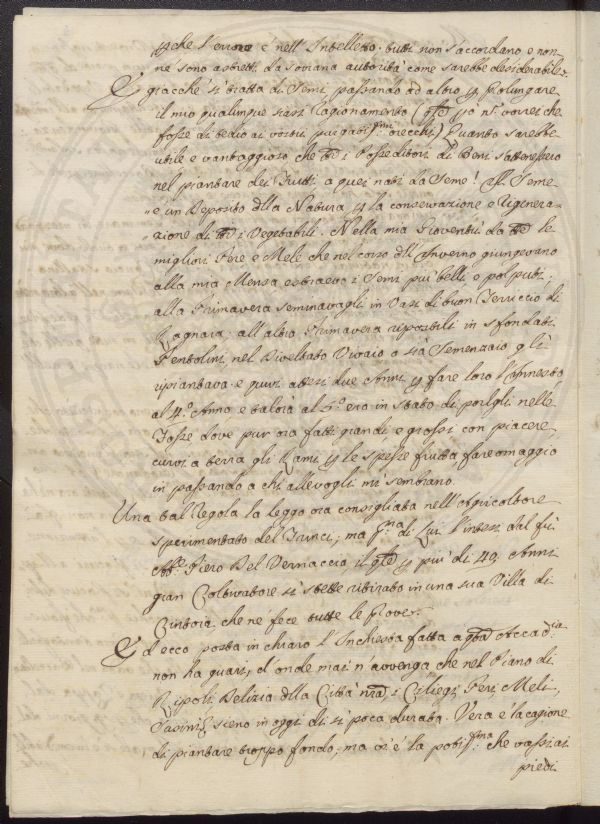 che l'errore è nell'Intelletto. tutti non s'accordano e non
nè sono astretti da sovrana autorità come sarebbe desiderabile.
E giacchè si tratta di Semi, passando ad altro p prolungare
il mio qualunque siasi Ragionamento ( io nō vorrei che
fosse di tedio ai vostri purgati.mi orecchi) Quanto sarebbe
utile e vantaggioso che i Posseditori di Beni s'attenessero
nel piantare dei Frutti a quei nati da Seme! Il Seme
" è un Deposito dlla Natura p la conservazione e Rigenera=
" zione di i Vegetabili. Nella mia Gioventù da le
migliori Pere e Mele che nel corso dll'Inverno giungevano
alla mia Mensa estraevo i Semi più belli e polputi;
alla Primavera seminavagli in Vasi di buon Terriccio di
Ragnaia; all'altra Primavera ripostili in sfondati
Pentolini, nel Diveltato Vivaio o sia Semenzaio gli
ripiantava e quivi attesi due Anni p fare loro l'Annesto
al 4.° Anno e talora al 5.° ero in stato di porlgli nelle
Fosse dove pur ora fatti grandi, e grossi con piacere,
curvi a terra gli Rami p le spesse frutta, fare omaggio
in passando a chi allevogli mi sembrano.
Una tal Regola la leggo ora consigliata nell'Agricoltore
sperimentato del Trinci; ma p.ma di Lui l'intesi dal fù
Ab.e Piero Del Vernaccia il p più di 40: Anni
gran Coltivatore si stette ritirato in una sua Villa di
Cintoia, che nè fece tutte le Prove.
Ed ecco posta in chiaro l'Inchiesta fatta a Accad.ia
non ha guari, d'onde mai n avvenga che nel Piano di
Ripoli Delizia dlla Città nrā, i Ciliegi, Peri, Meli,
Susini sieno in oggi di sì poca durata. Vera è la cagione
di piantare troppo fondo; ma vi è la .ma che vassi ai
piedi